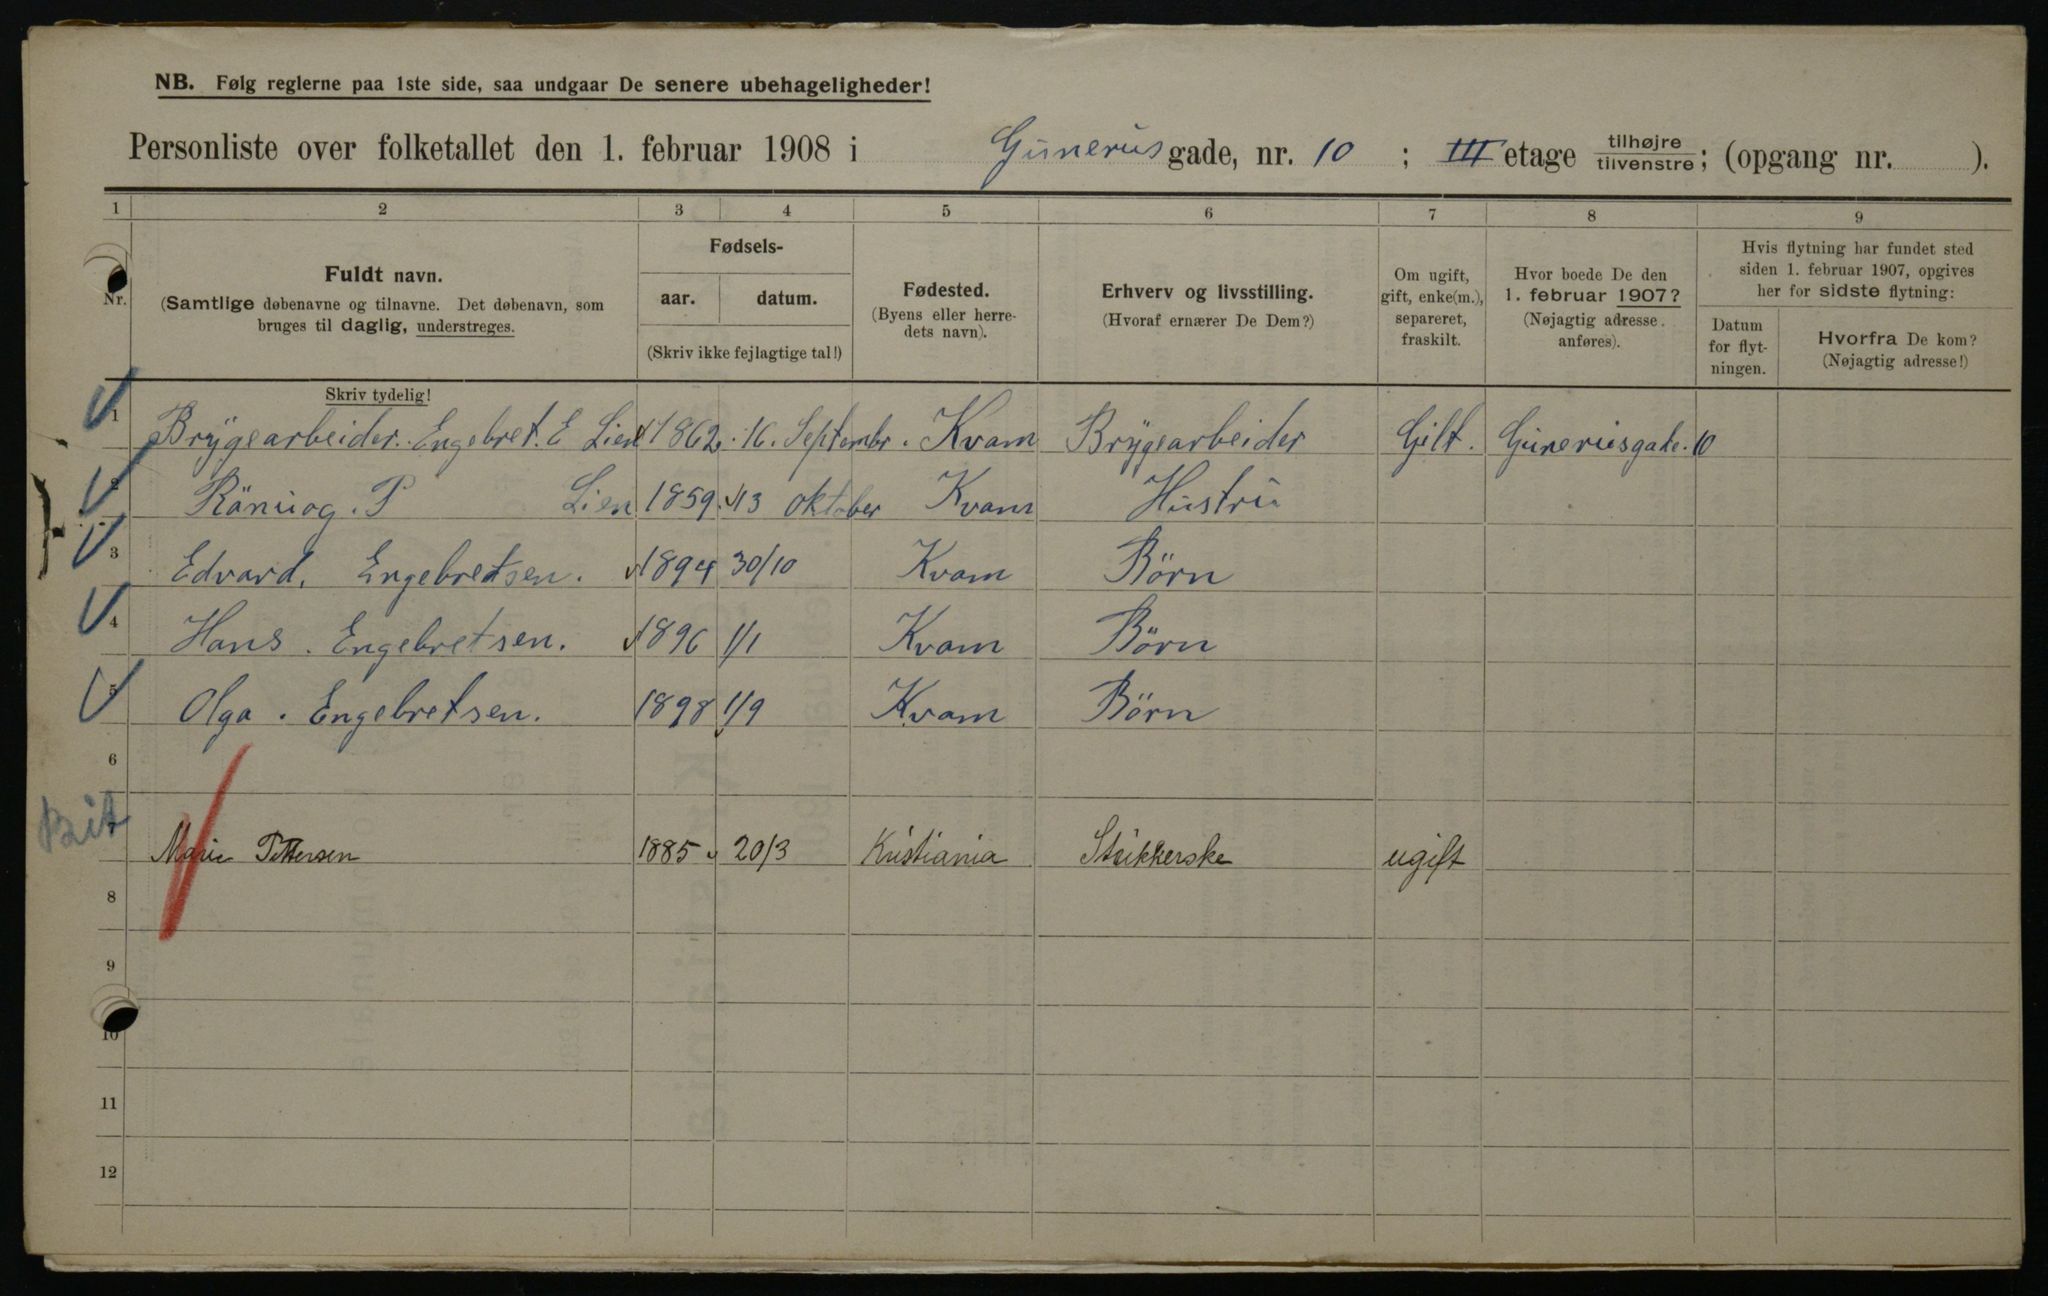 NB. Følg reglerne paa 1ste side, saa undgaar De senere ubehageligheder!
Personliste over folketallet den 1. februar 1908 i Gunerius gade, nr. 10 ; III etage tilhøjre tilvenstre; (opgang nr. ).
1 2 3 4 5 6 7 8 9
Nr.
Fuldt navn.
(Samtlige døbenavne og tilnavne. Det døbenavn, som
bruges til daglig, understreges.
Skriv tydelig!
Fødsels-
aar. datum.
(Skriv ikke fejlagtige tal!)
Fødested.
(Byens eller herre-
dets navn).
Erhverv og livsstilling.
(Hvoraf ernærer De Dem?)
Om ugift,
gift, enke(m.),
separeret,
fraskilt.
Hvor boede De den
1. februar 1907?
(Nøjagtig adresse
anføres).
Hvis flytning har fundet sted
siden 1. februar 1907, opgives
her for sidste flytning:
Datum
for flyt-
ningen.
Hvorfra De kom?
(Nøjagtig adresse!)
1 Brygearbeider. Engebret. E Lien 1862. 16. Septembr. Kvam Brygearbeider Gift. Guneriusgade. 10
2 Rönnog. P Lien 1859. 13 Oktober Kvam Hustru
3 Edvard. Engebretsen. 1894 30/10 Kvam Börn
4 Hans. Engebretsen. 1896 1/1 Kvam Börn
5 Olga. Engebretsen. 1898 1/9 Kvam Börn
6
Marie Pettersen 1885 20/3 Kristiania Stikkerske ugift
8
9
10
11
12